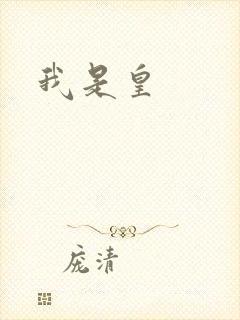 我是皇
庞清